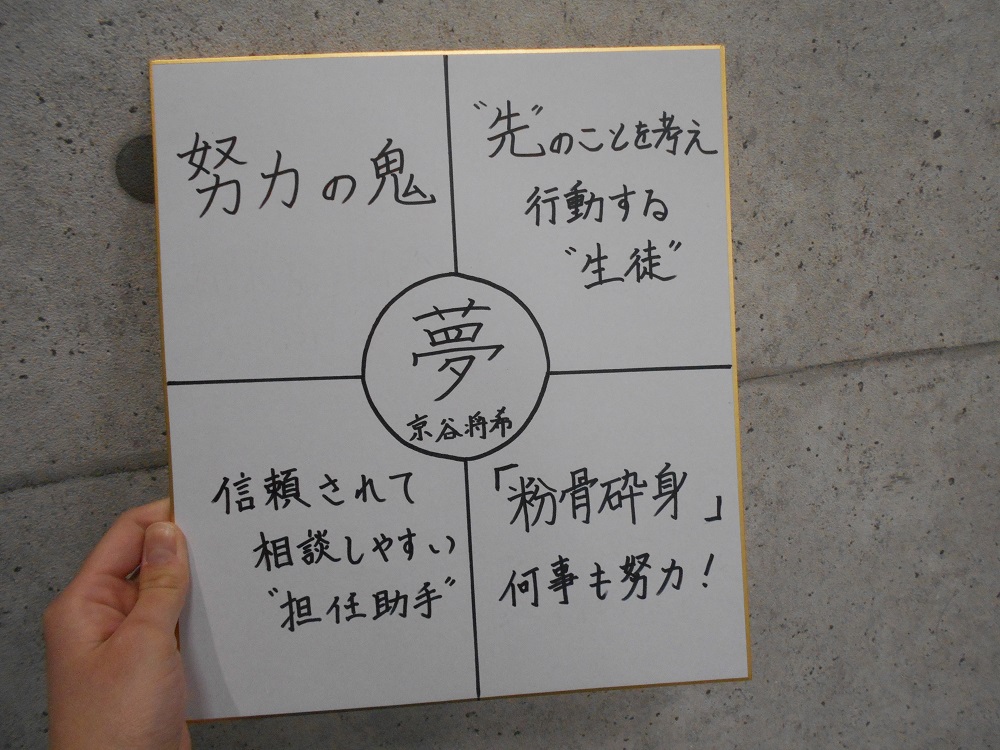 努力の鬼
"先"のことを考え
行動する
"生徒"
夢
京谷将希
信頼されて
相談しやすい
"担任助手"
「粉骨砕身」
何事も努力！